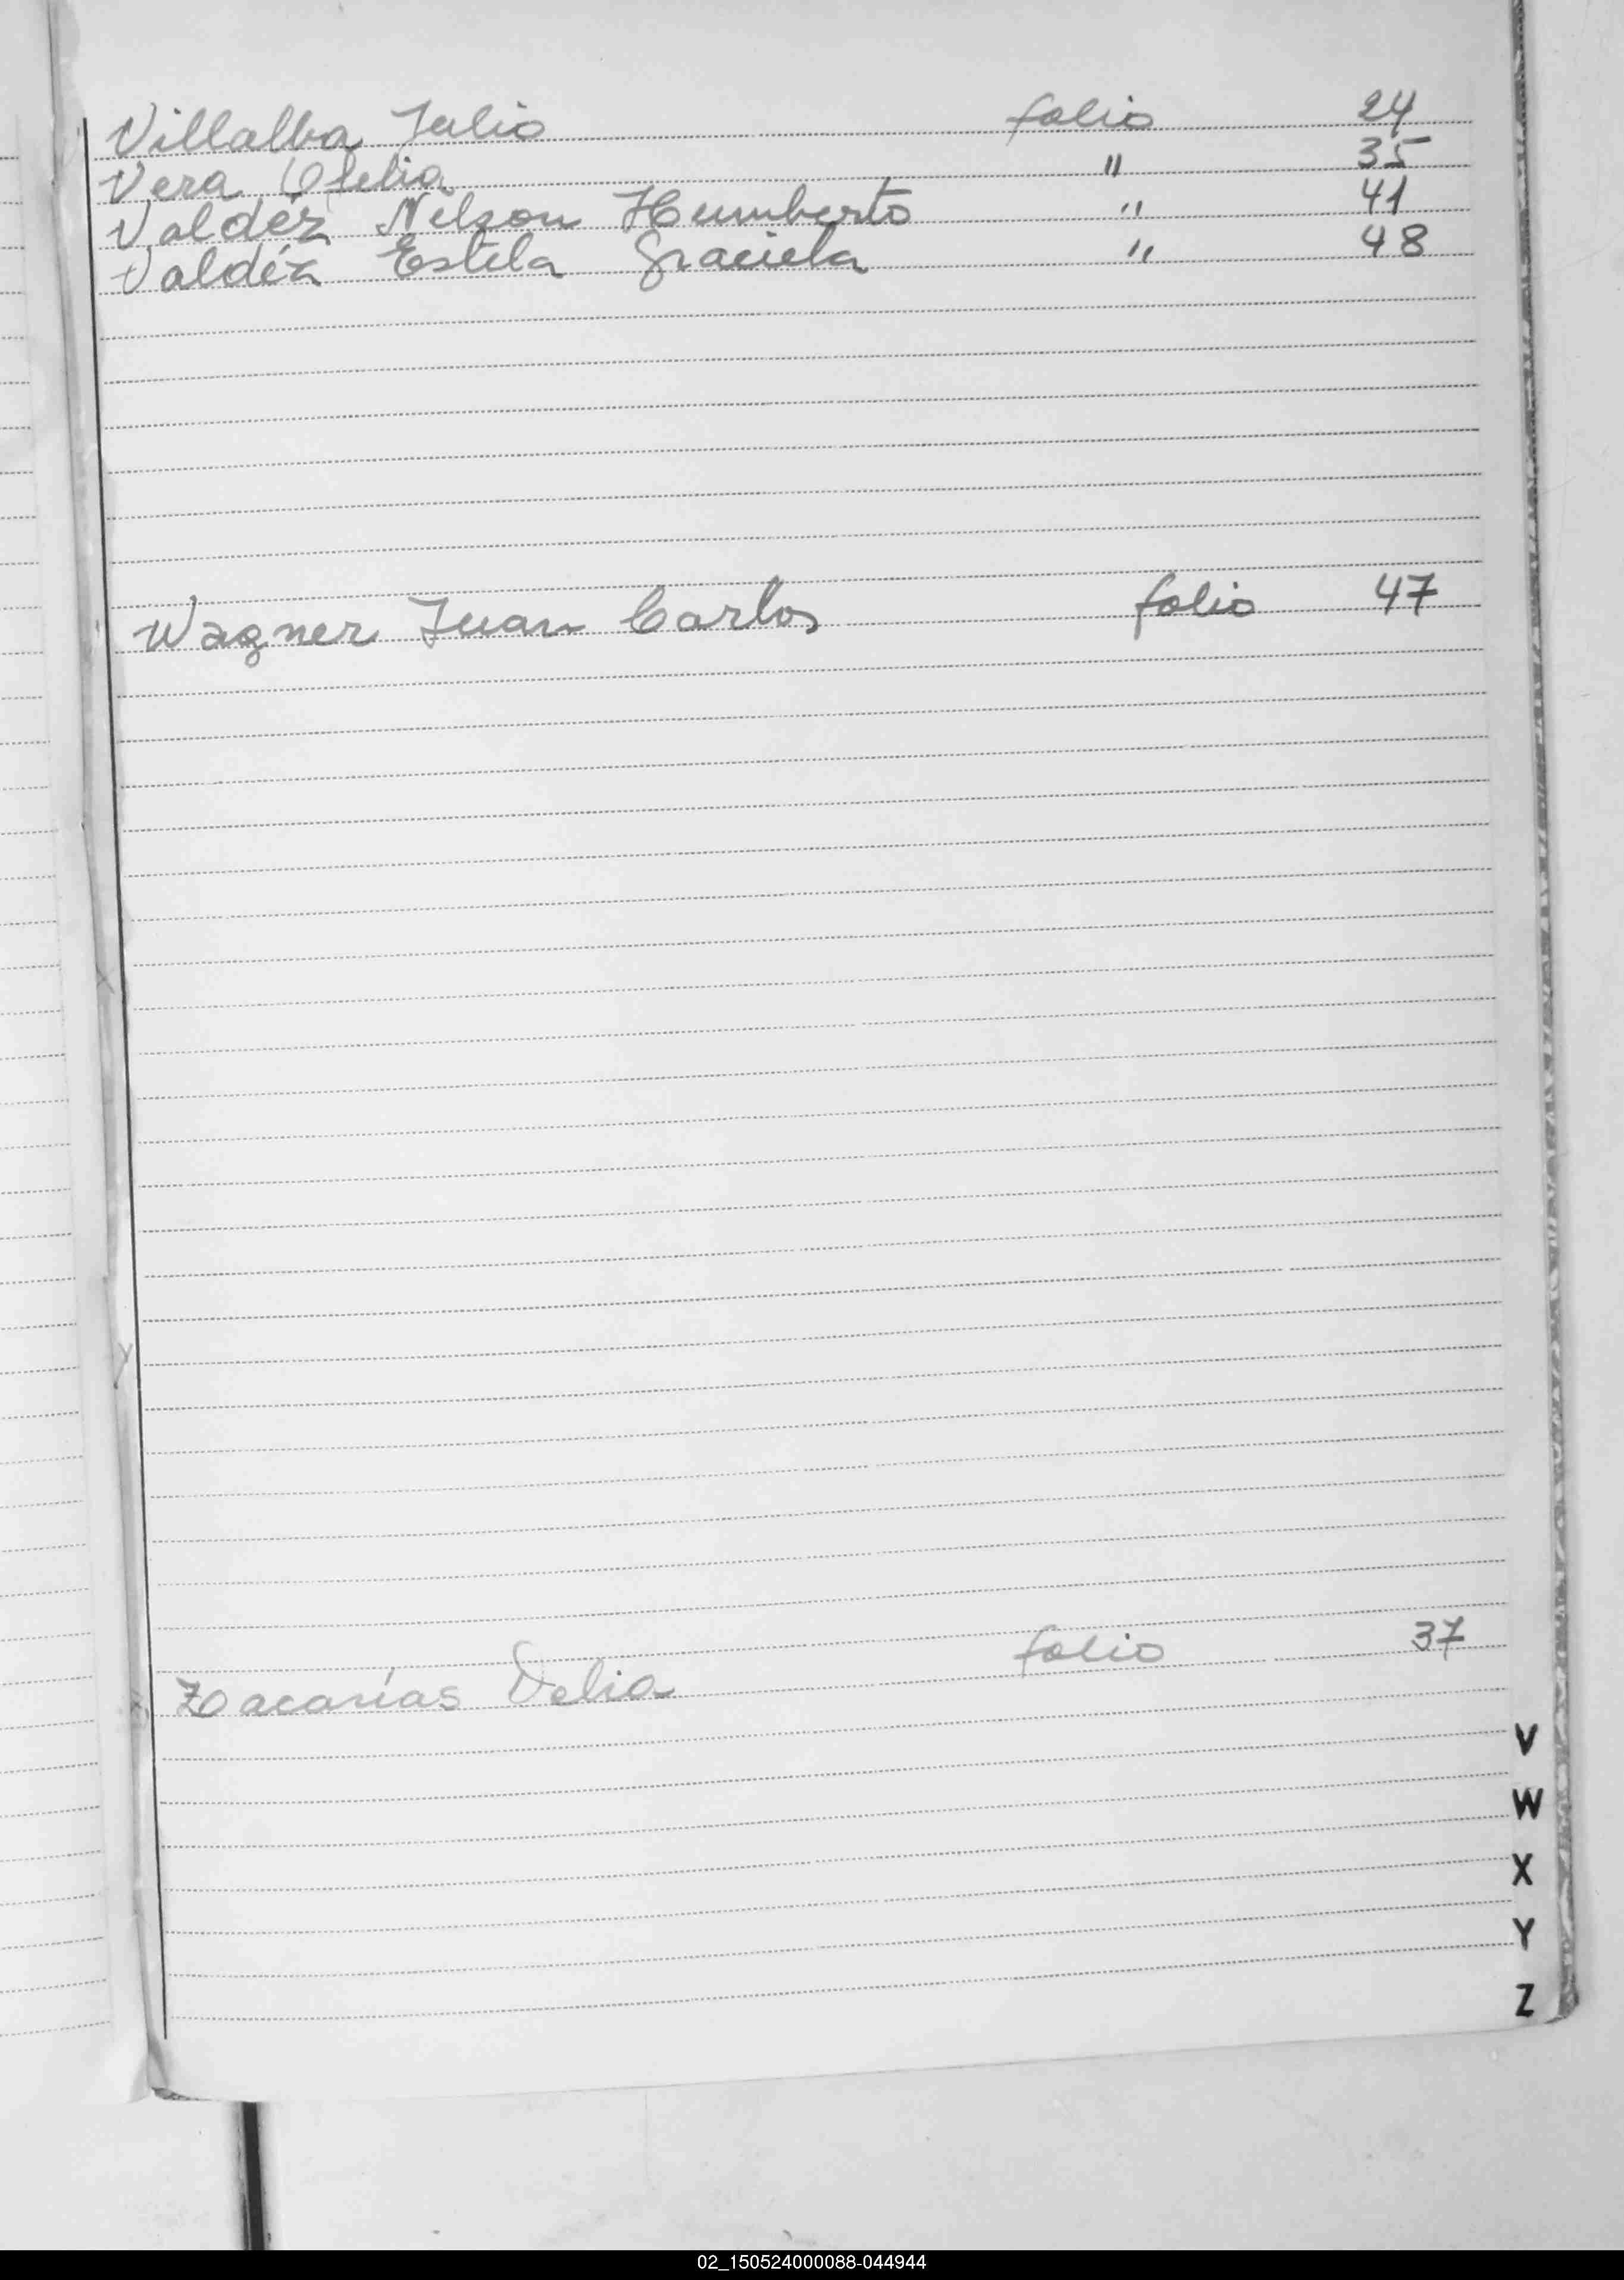 Villalba Julio folio 24
Vera Ofelia " 35
Valdéz Nelson Humberto " 41
Valdéz Estela Graciela " 48
Wagner Juan Carlos folio 47
Zacarías Delia folio 37
V
W
X
Y
Z
02_150524000088-044944